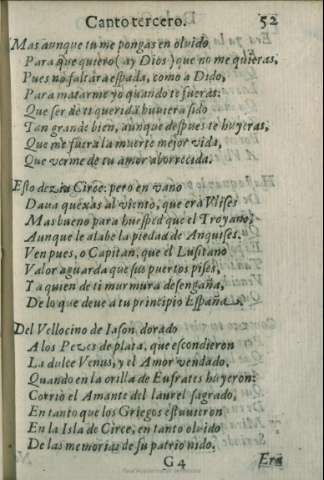 Canto tercero. 52
Mas aunque tu me pongas en olvido,
Para que quiero (ay Dios) que no me quieras,
Pues no faltàra espada, como a Dido,
Para matarme yo quando te fueras:
Que ser de ti querida huuiera sido
Tan grande bien, aunque despues te huyeras,
Que me fuera la muerte mejor vida,
Que verme de tu amor aborrecida.
Esto dezia Circe: pero en vano
Daua quexas al viento, que era Vlises
Mas bueno para huesped que el Troyano,
Aunque le alabe la piedad de Anquises.
Ven pues, o Capitan, que el Lusitano
Valor aguarda que sus puertos pises,
Y a quien de ti murmura desengaña,
De lo que deue a tu principio España.
Del Vellocino de Iason dorado
A los Pezes de plata, que escondieron
La dulce Venus, y el Amor vendado,
Quando en la orilla de Eufrates huyeron:
Corriò el Amante del laurel sagrado,
En tanto que los Griegos estuuieron
En la Isla de Circe, en tanto olvido
De las memorias de su patrio nido.
G 4 Era